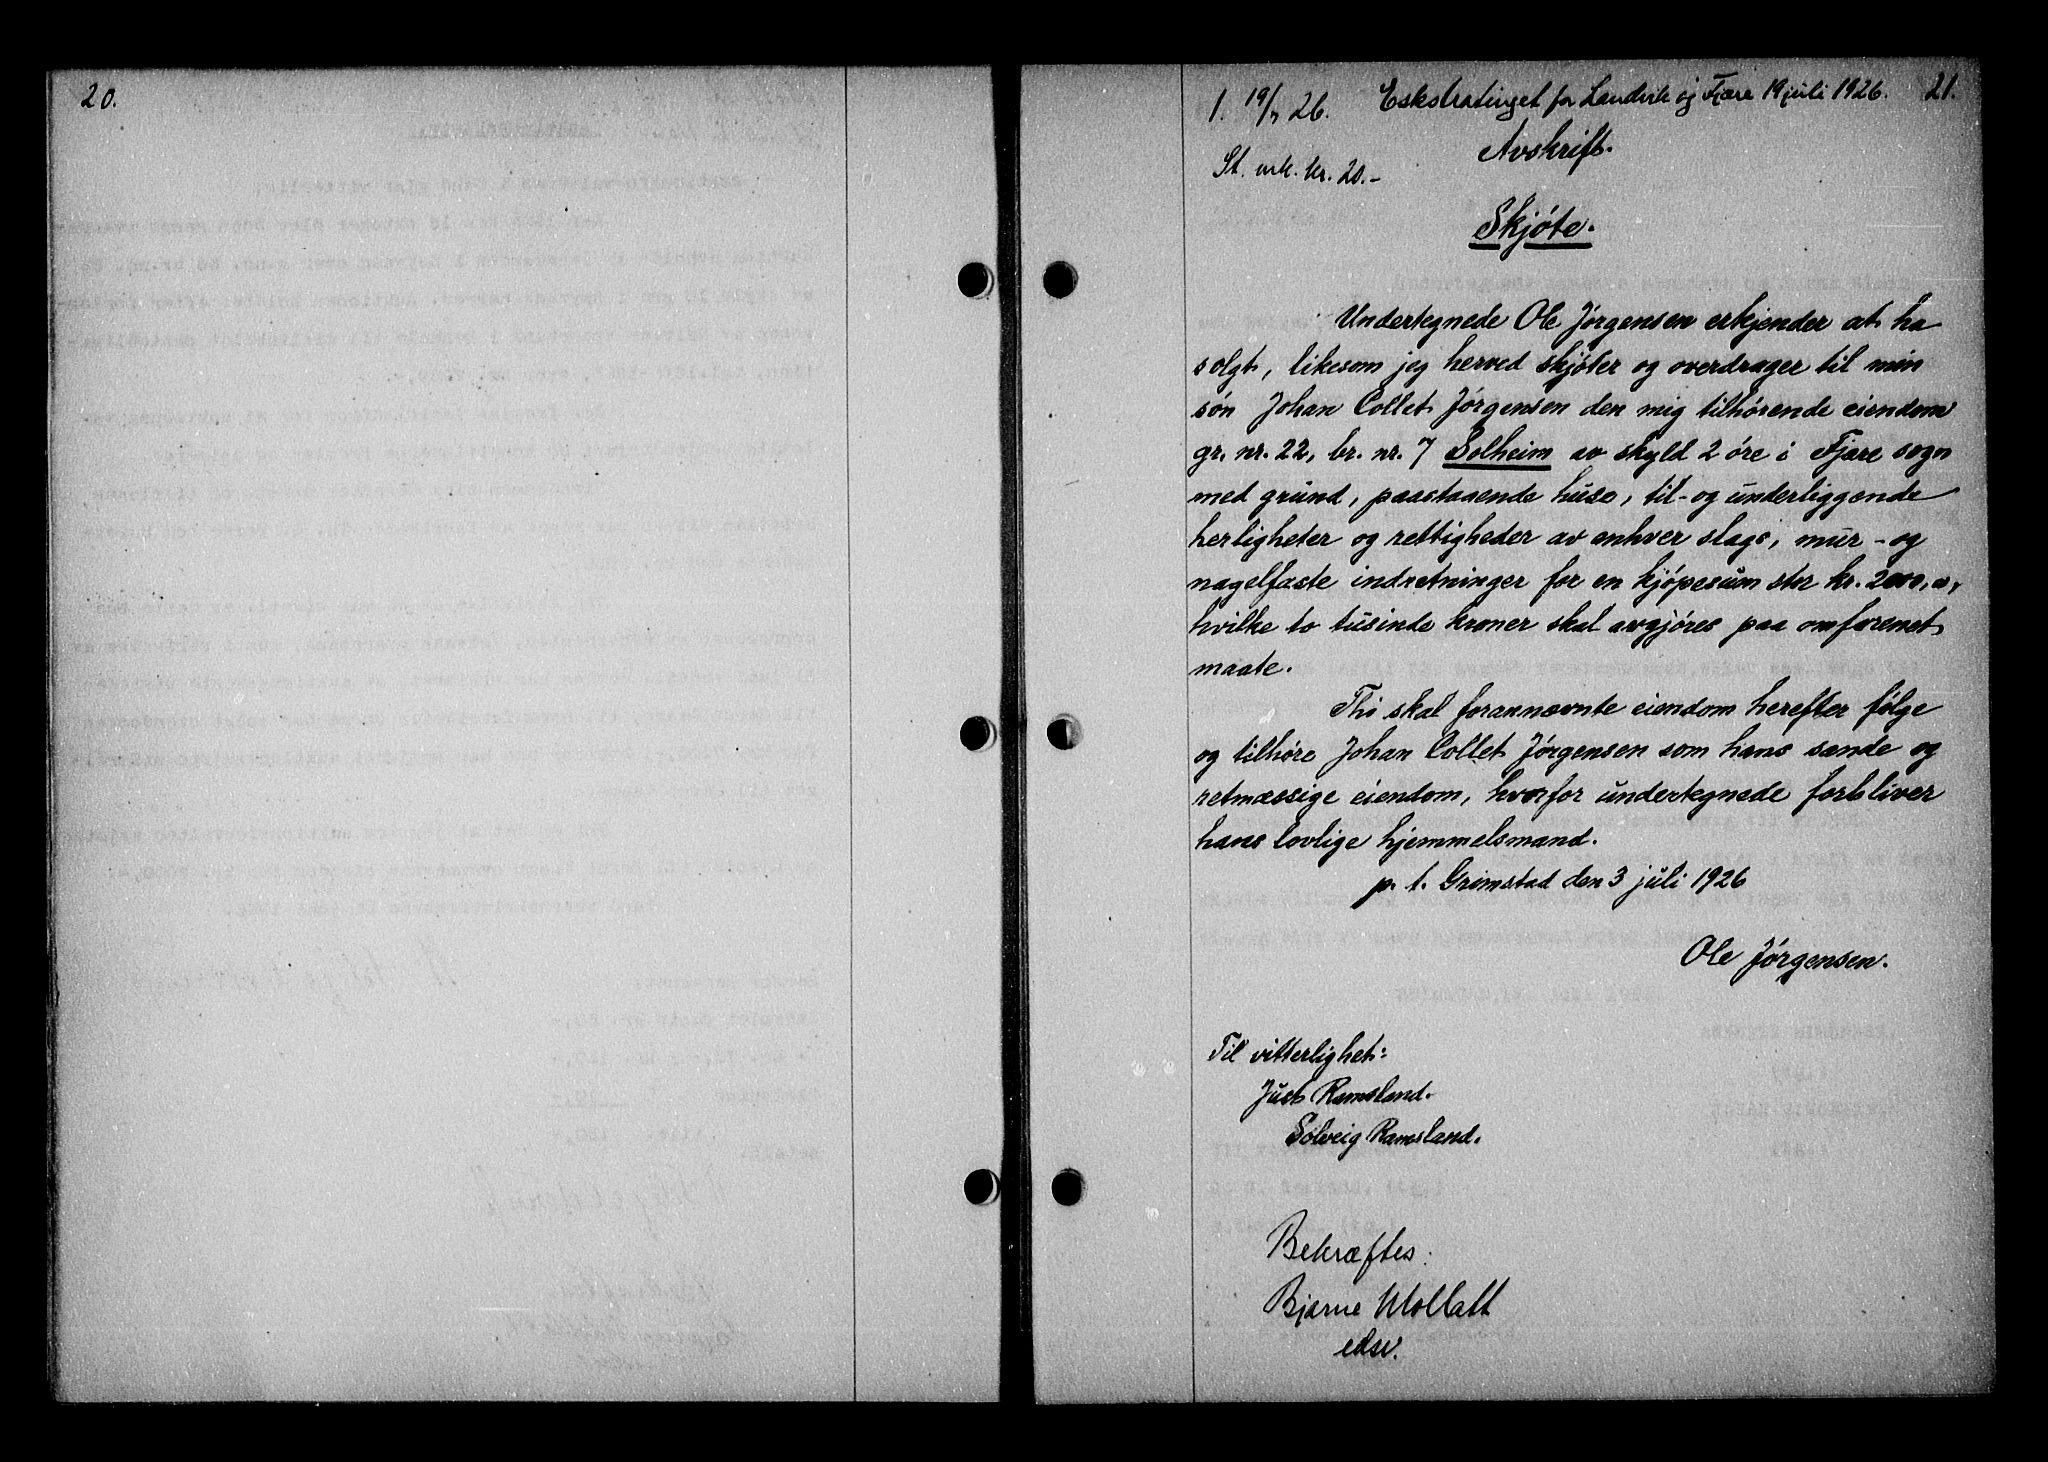 20.
1. 19/7 26. Eskstratinget for Landvik og Fjære 19 juli 1926. 21.
Avskrift.
St. mk. kr. 20.-
Skjöte.
Undertegnede Ole Jörgensen erkjender at ha
solgt, likesom jeg herved skjöter og overdrager til min
sön Johan Collet Jörgensen den mig tilhörende eiendom
gr. nr. 22, br. nr. 7 Solheim av skyld 2 öre i Fjære sogn
med grund, paastaaende huse, til- og underliggende
herligheter og rettigheder av enhver slags, mur- og
nagelfaste indretninger for en kjöpesum stor kr. 2000,00,
hvilke to tusinde kroner skal avgjöres paa omforenet
maate.
Thi skal forannævnte eiendom herefter fölge
og tilhöre Johan Collet Jörgensen som hans sande og
retmæssige eiendom, hvorfor undertegnede forbliver
hans lovlige hjemmelsmand.
p. t. Grimstad den 3 juli 1926
Ole Jörgensen.
Til vitterlighet:
Just Ramsland.
Solveig Ramsland.
Bekræftes:
Bjarne Mollatt
edsv.